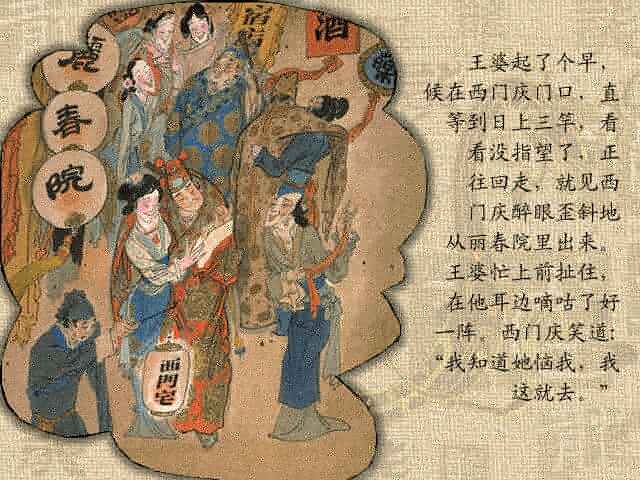 麗春院
酒
西門宅
王婆起了个早，
候在西门庆门口，直
等到日上三竿，看
看没指望了，正
往回走，就见西
门庆醉眼歪斜地
从丽春院里出来。
王婆忙上前扯住，
在他耳边嘀咕了好
一阵。西门庆笑道：
“我知道她恼我，我
这就去。”